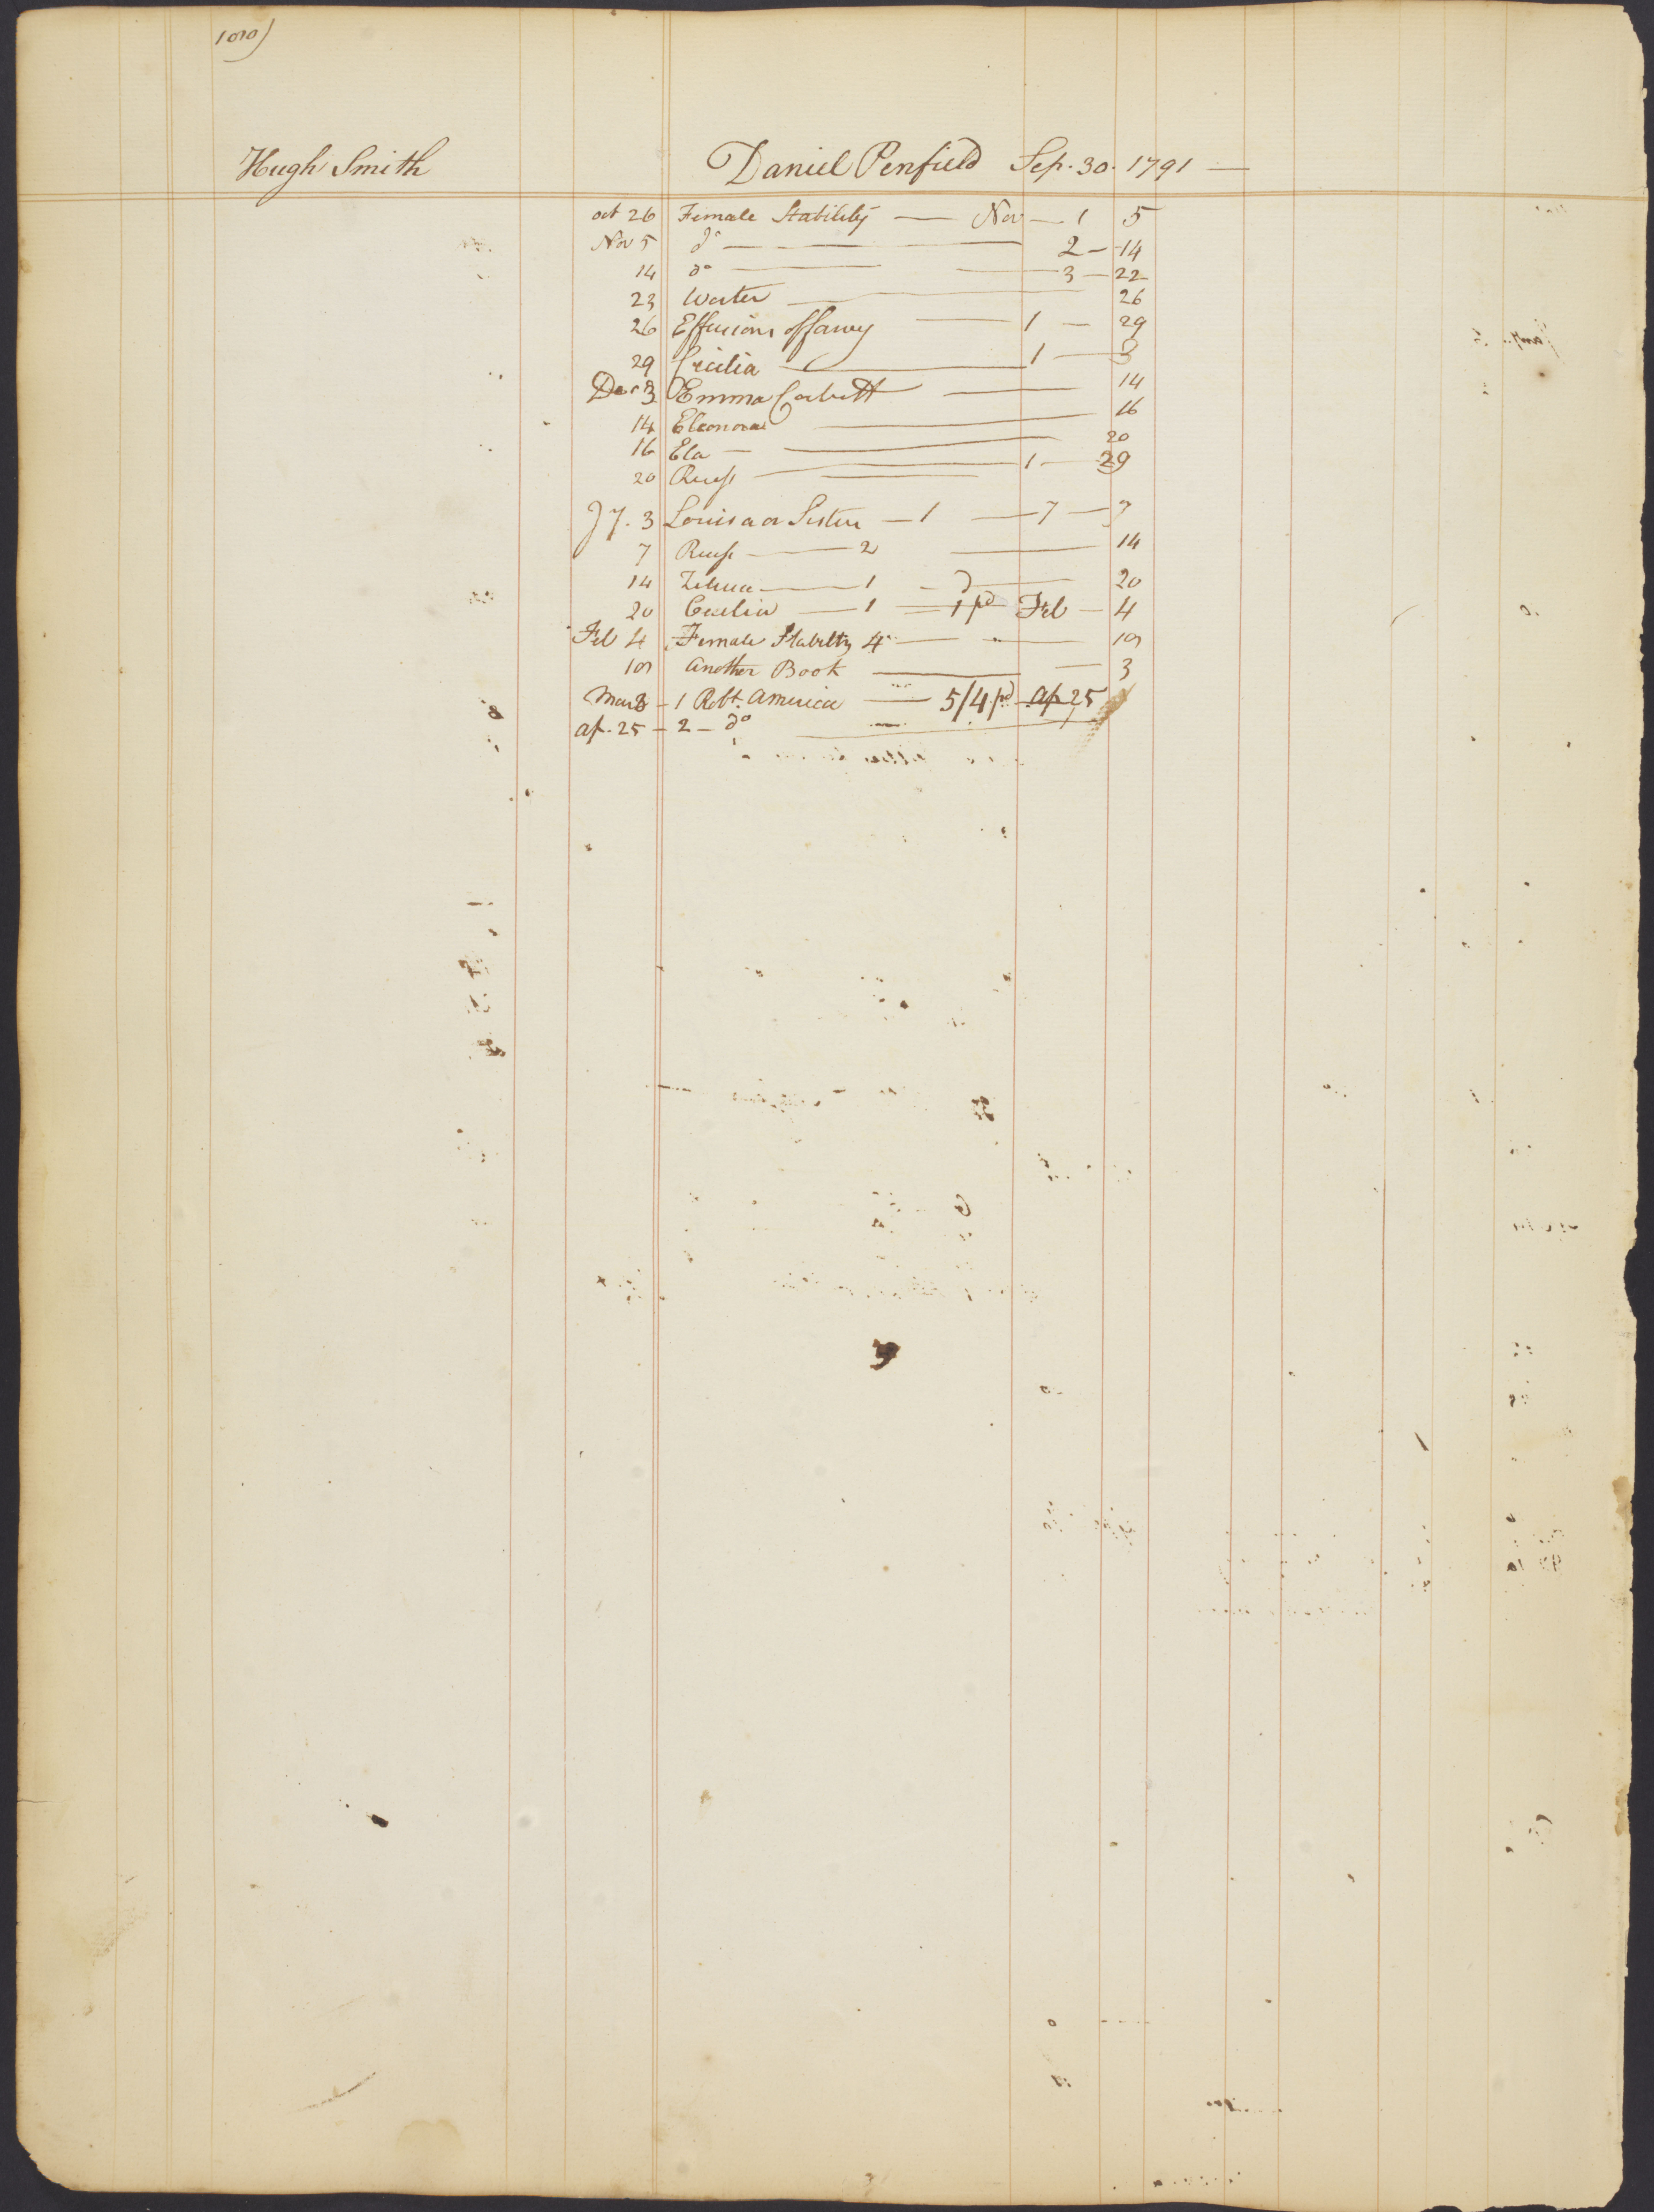 100)
Hugh Smith
Daniel Penfield Sep. 30. 1791 —
oct 26 Female Stability — Nov — 1 5
Nov 5 do — 2 — 14
14 do — 3 — 22
23 Werter — 26
26 Effusions of fancy — 1 — 29
29 Cecilia — 1 — 3
Decr 3 Emma Corbett — 14
14 Eleonora — 16
16 Ela — 20
20 — 1 — 29
Jy. 3 Louisa or Sister — 1 — 7 — 7
7 — 2 — 14
14 — 1 — 20
20 Cecilia — 1 — 1 pd Feb — 4
Feb 4 Female Stability 4 — 10
10 Another Book — 3
Mar 3 – 1 Robt. America — 5/4 pd ap 25
ap. 25 – 2 – do —